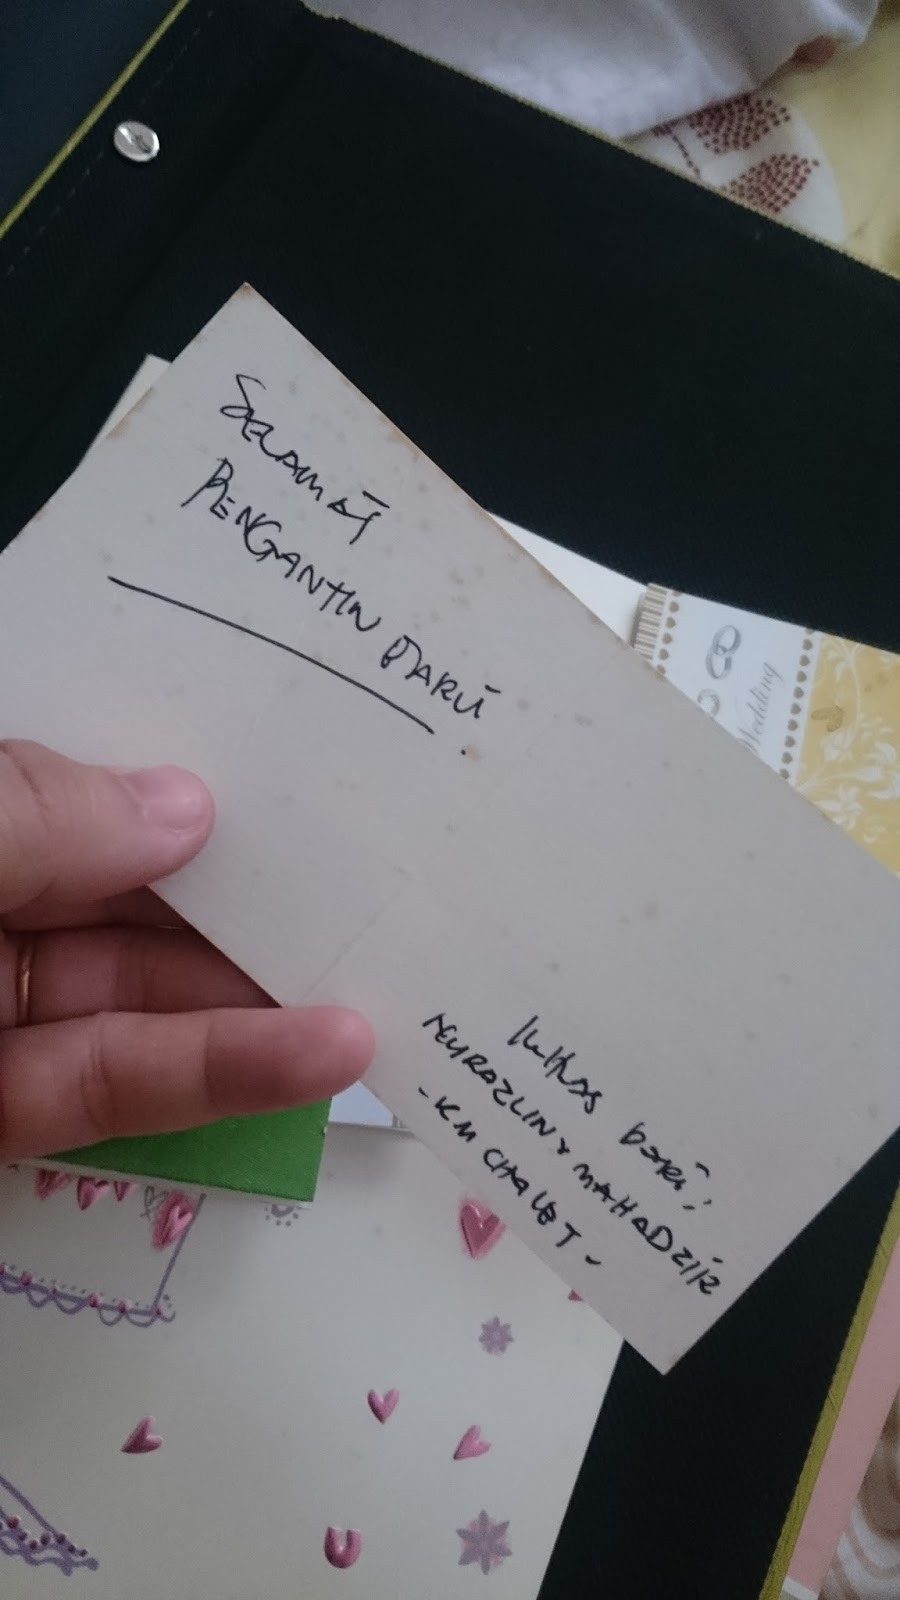 SELAMAT
PENGANTIN BARU
Ikhlas dari;
NURAZLIN & MAHADZIR
- KM CHALET -
Wedding